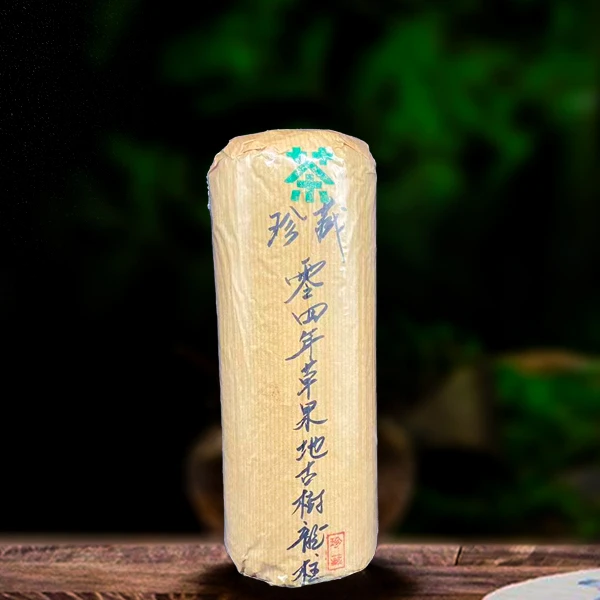 茶
珍藏
零四年草果地古樹龍柱
珍藏